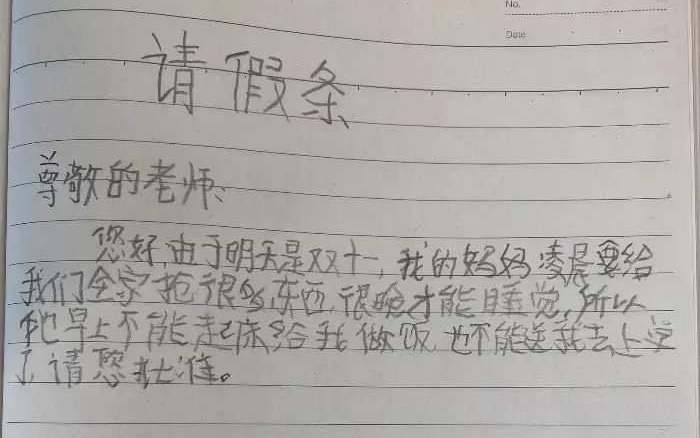 No.
Date
请假条
尊敬的老师：
您好,由于明天是双十一,我的妈妈凌晨要给
我们全家抢很多东西,很晚才能睡觉,所以
她早上不能起床给我做饭,也不能送我去上学
了请您批准。